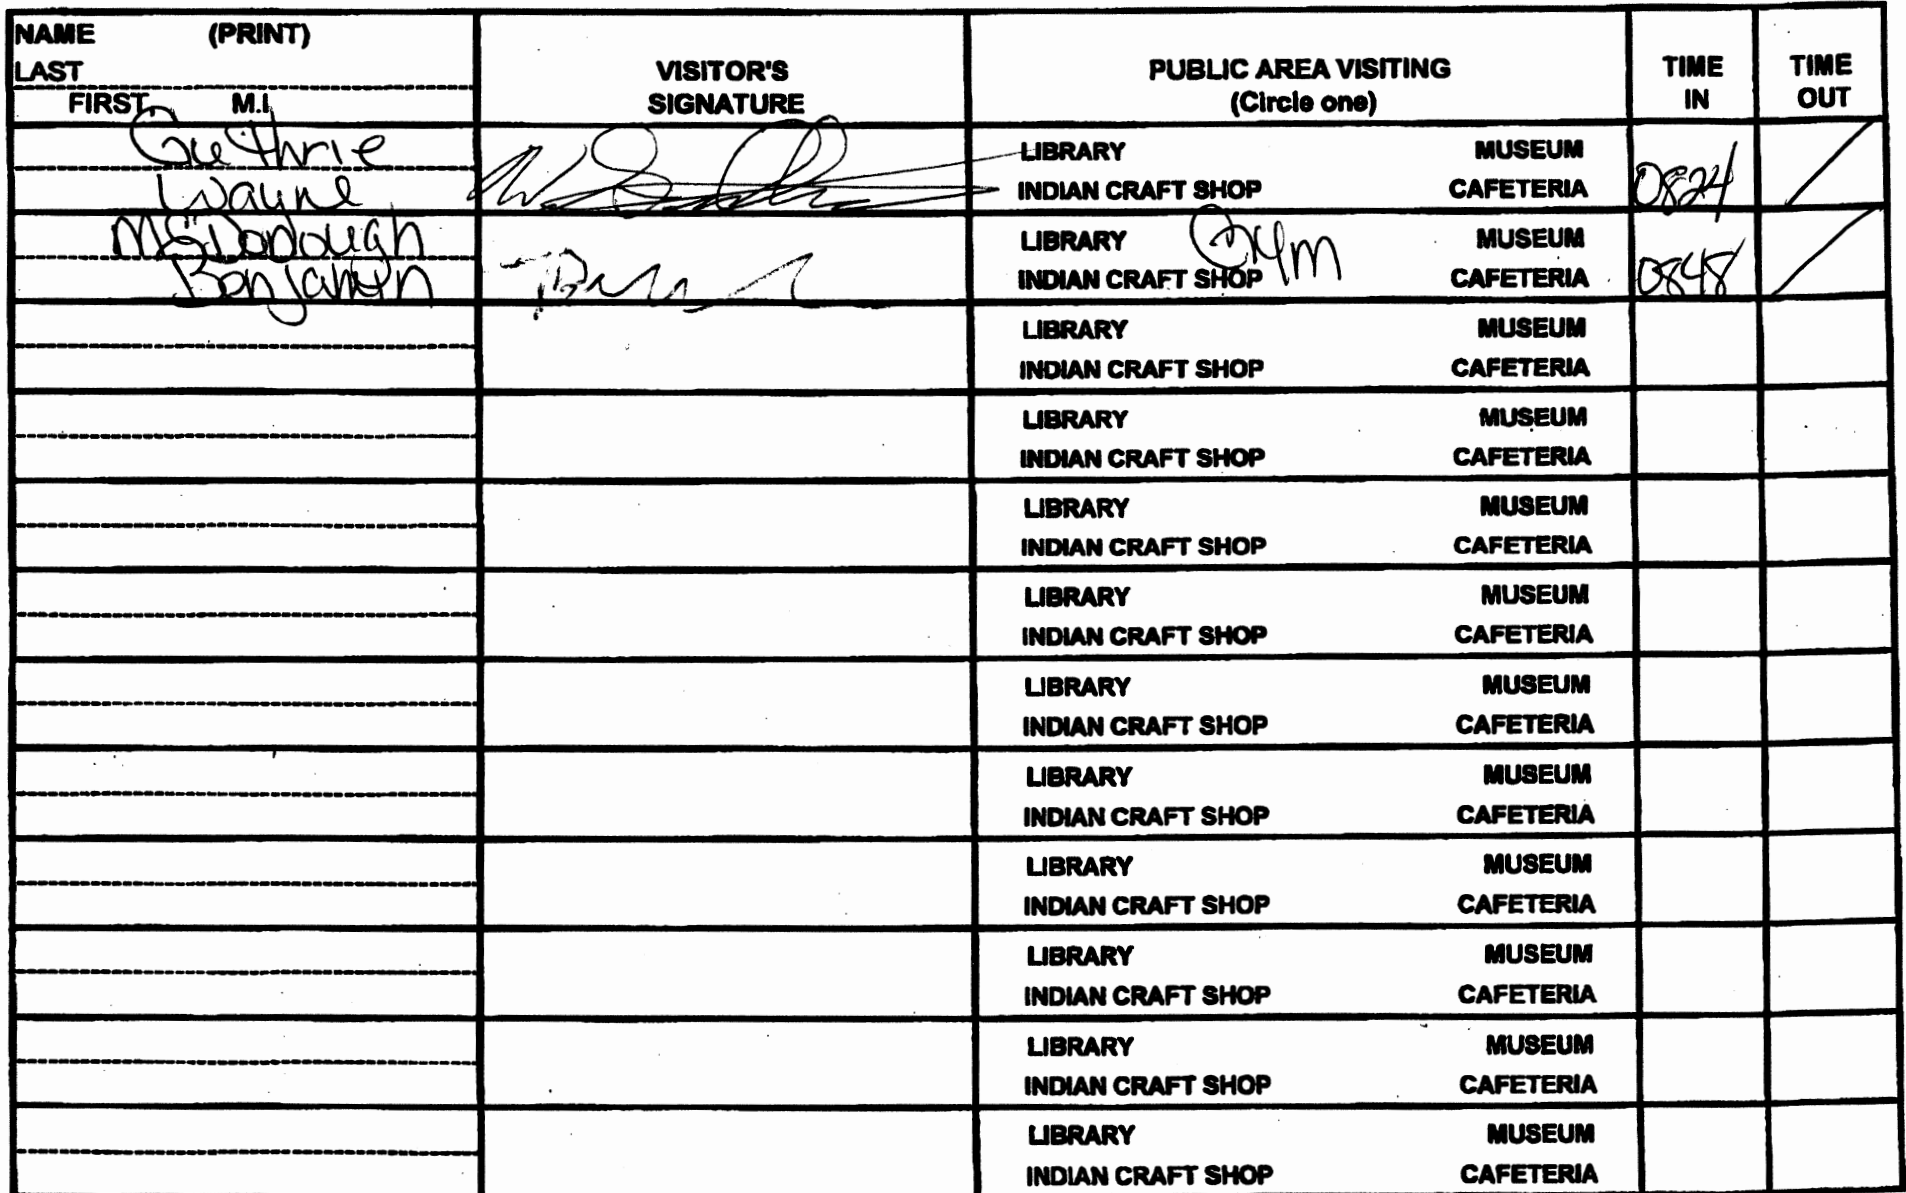 NAME (PRINT)
LAST
FIRST M.I.
VISITOR'S
SIGNATURE
PUBLIC AREA VISITING
(Circle one)
TIME
IN
TIME
OUT
Guthrie
Wayne
LIBRARY MUSEUM
INDIAN CRAFT SHOP CAFETERIA
0824
McDonough
Benjamin
LIBRARY Gym MUSEUM
INDIAN CRAFT SHOP CAFETERIA
0848
LIBRARY MUSEUM
INDIAN CRAFT SHOP CAFETERIA
LIBRARY MUSEUM
INDIAN CRAFT SHOP CAFETERIA
LIBRARY MUSEUM
INDIAN CRAFT SHOP CAFETERIA
LIBRARY MUSEUM
INDIAN CRAFT SHOP CAFETERIA
LIBRARY MUSEUM
INDIAN CRAFT SHOP CAFETERIA
LIBRARY MUSEUM
INDIAN CRAFT SHOP CAFETERIA
LIBRARY MUSEUM
INDIAN CRAFT SHOP CAFETERIA
LIBRARY MUSEUM
INDIAN CRAFT SHOP CAFETERIA
LIBRARY MUSEUM
INDIAN CRAFT SHOP CAFETERIA
LIBRARY MUSEUM
INDIAN CRAFT SHOP CAFETERIA